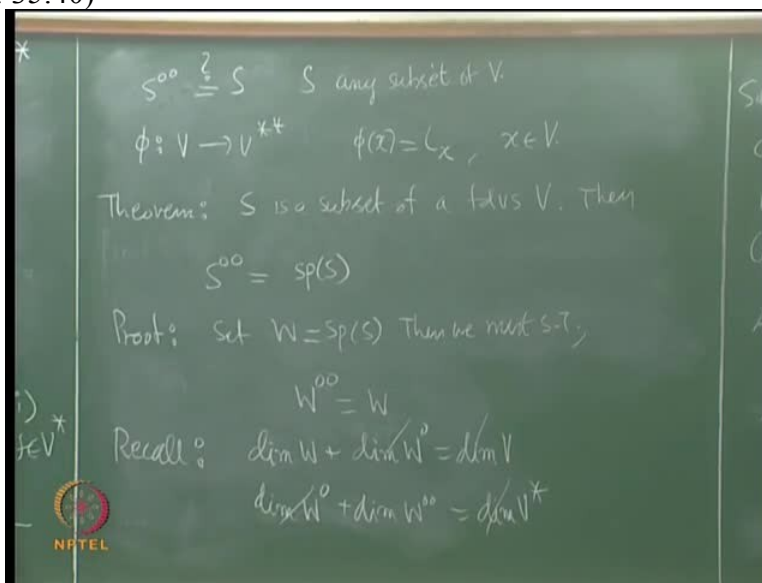 33:40)
*
S⁰⁰ ≟ S S any subset of V.
ϕ: V → V** ϕ(x) = Lₓ, x ∈ V.
Theorem: S is a subset of a fdvs V. Then
S⁰⁰ = sp(S)
Proof: Set W = Sp(S) Then we must S.T;
W⁰⁰ = W
i)
f∈V*
Recall: dim W + dim W⁰ = dim V
dim W⁰ + dim W⁰⁰ = dim V*
NPTEL